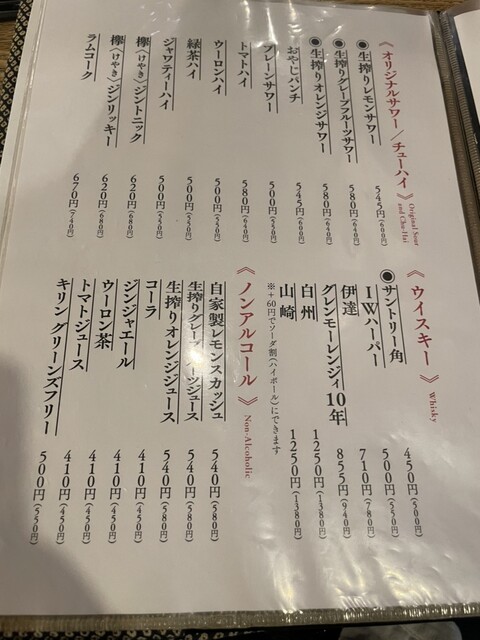 《オリジナルサワー／チューハイ》
Original Sour and Chu-Hai
◉生搾りレモンサワー 545円(600円)
◉生搾りグレープフルーツサワー 580円(640円)
◉生搾りオレンジサワー 580円(640円)
おやじパンチ 545円(600円)
プレーンサワー 500円(550円)
トマトハイ 580円(640円)
ウーロンハイ 500円(550円)
緑茶ハイ 500円(550円)
ジャワティーハイ 500円(550円)
欅〈けやき〉ジントニック 620円(680円)
欅〈けやき〉ジンリッキー 620円(680円)
ラムコーク 670円(740円)
《ウイスキー》 Whisky
◉サントリー角 450円(500円)
IWハーパー 500円(550円)
伊達 710円(780円)
グレンモーレンジィ10年 855円(940円)
白州 1250円(1380円)
山崎 1250円(1380円)
※+60円でソーダ割(ハイボール)にできます
《ノンアルコール》 Non-Alcoholic
自家製レモンスカッシュ 540円(580円)
生搾りグレープ ーツジュース 540円(580円)
生搾りオレンジジュース 540円(580円)
コーラ 410円(450円)
ジンジャエール 410円(450円)
ウーロン茶 410円(450円)
トマトジュース 410円(450円)
キリン グリーンズフリー 500円(550円)